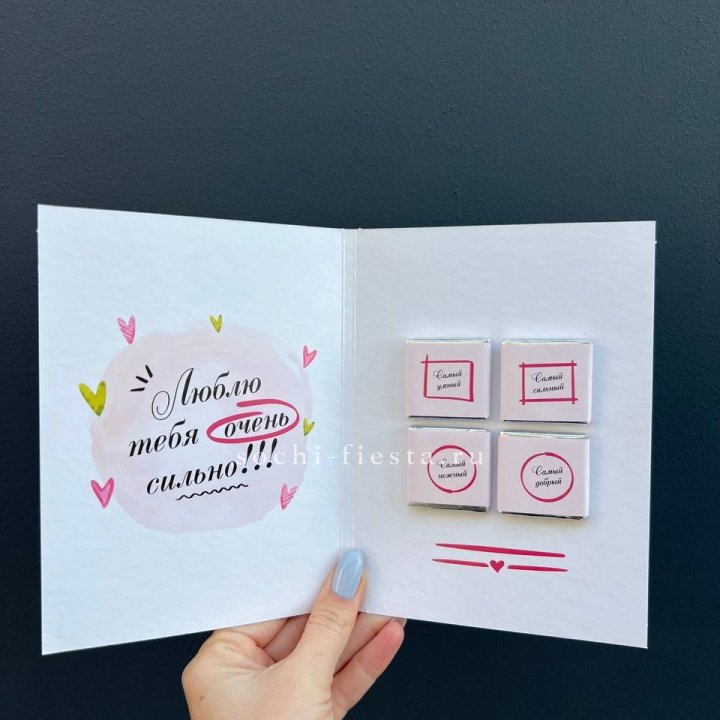 Люблю
тебя очень
сильно!!!
Самый
умный
Самый
сильный
Самый
нежный
Самый
добрый
sochi-fiesta.ru